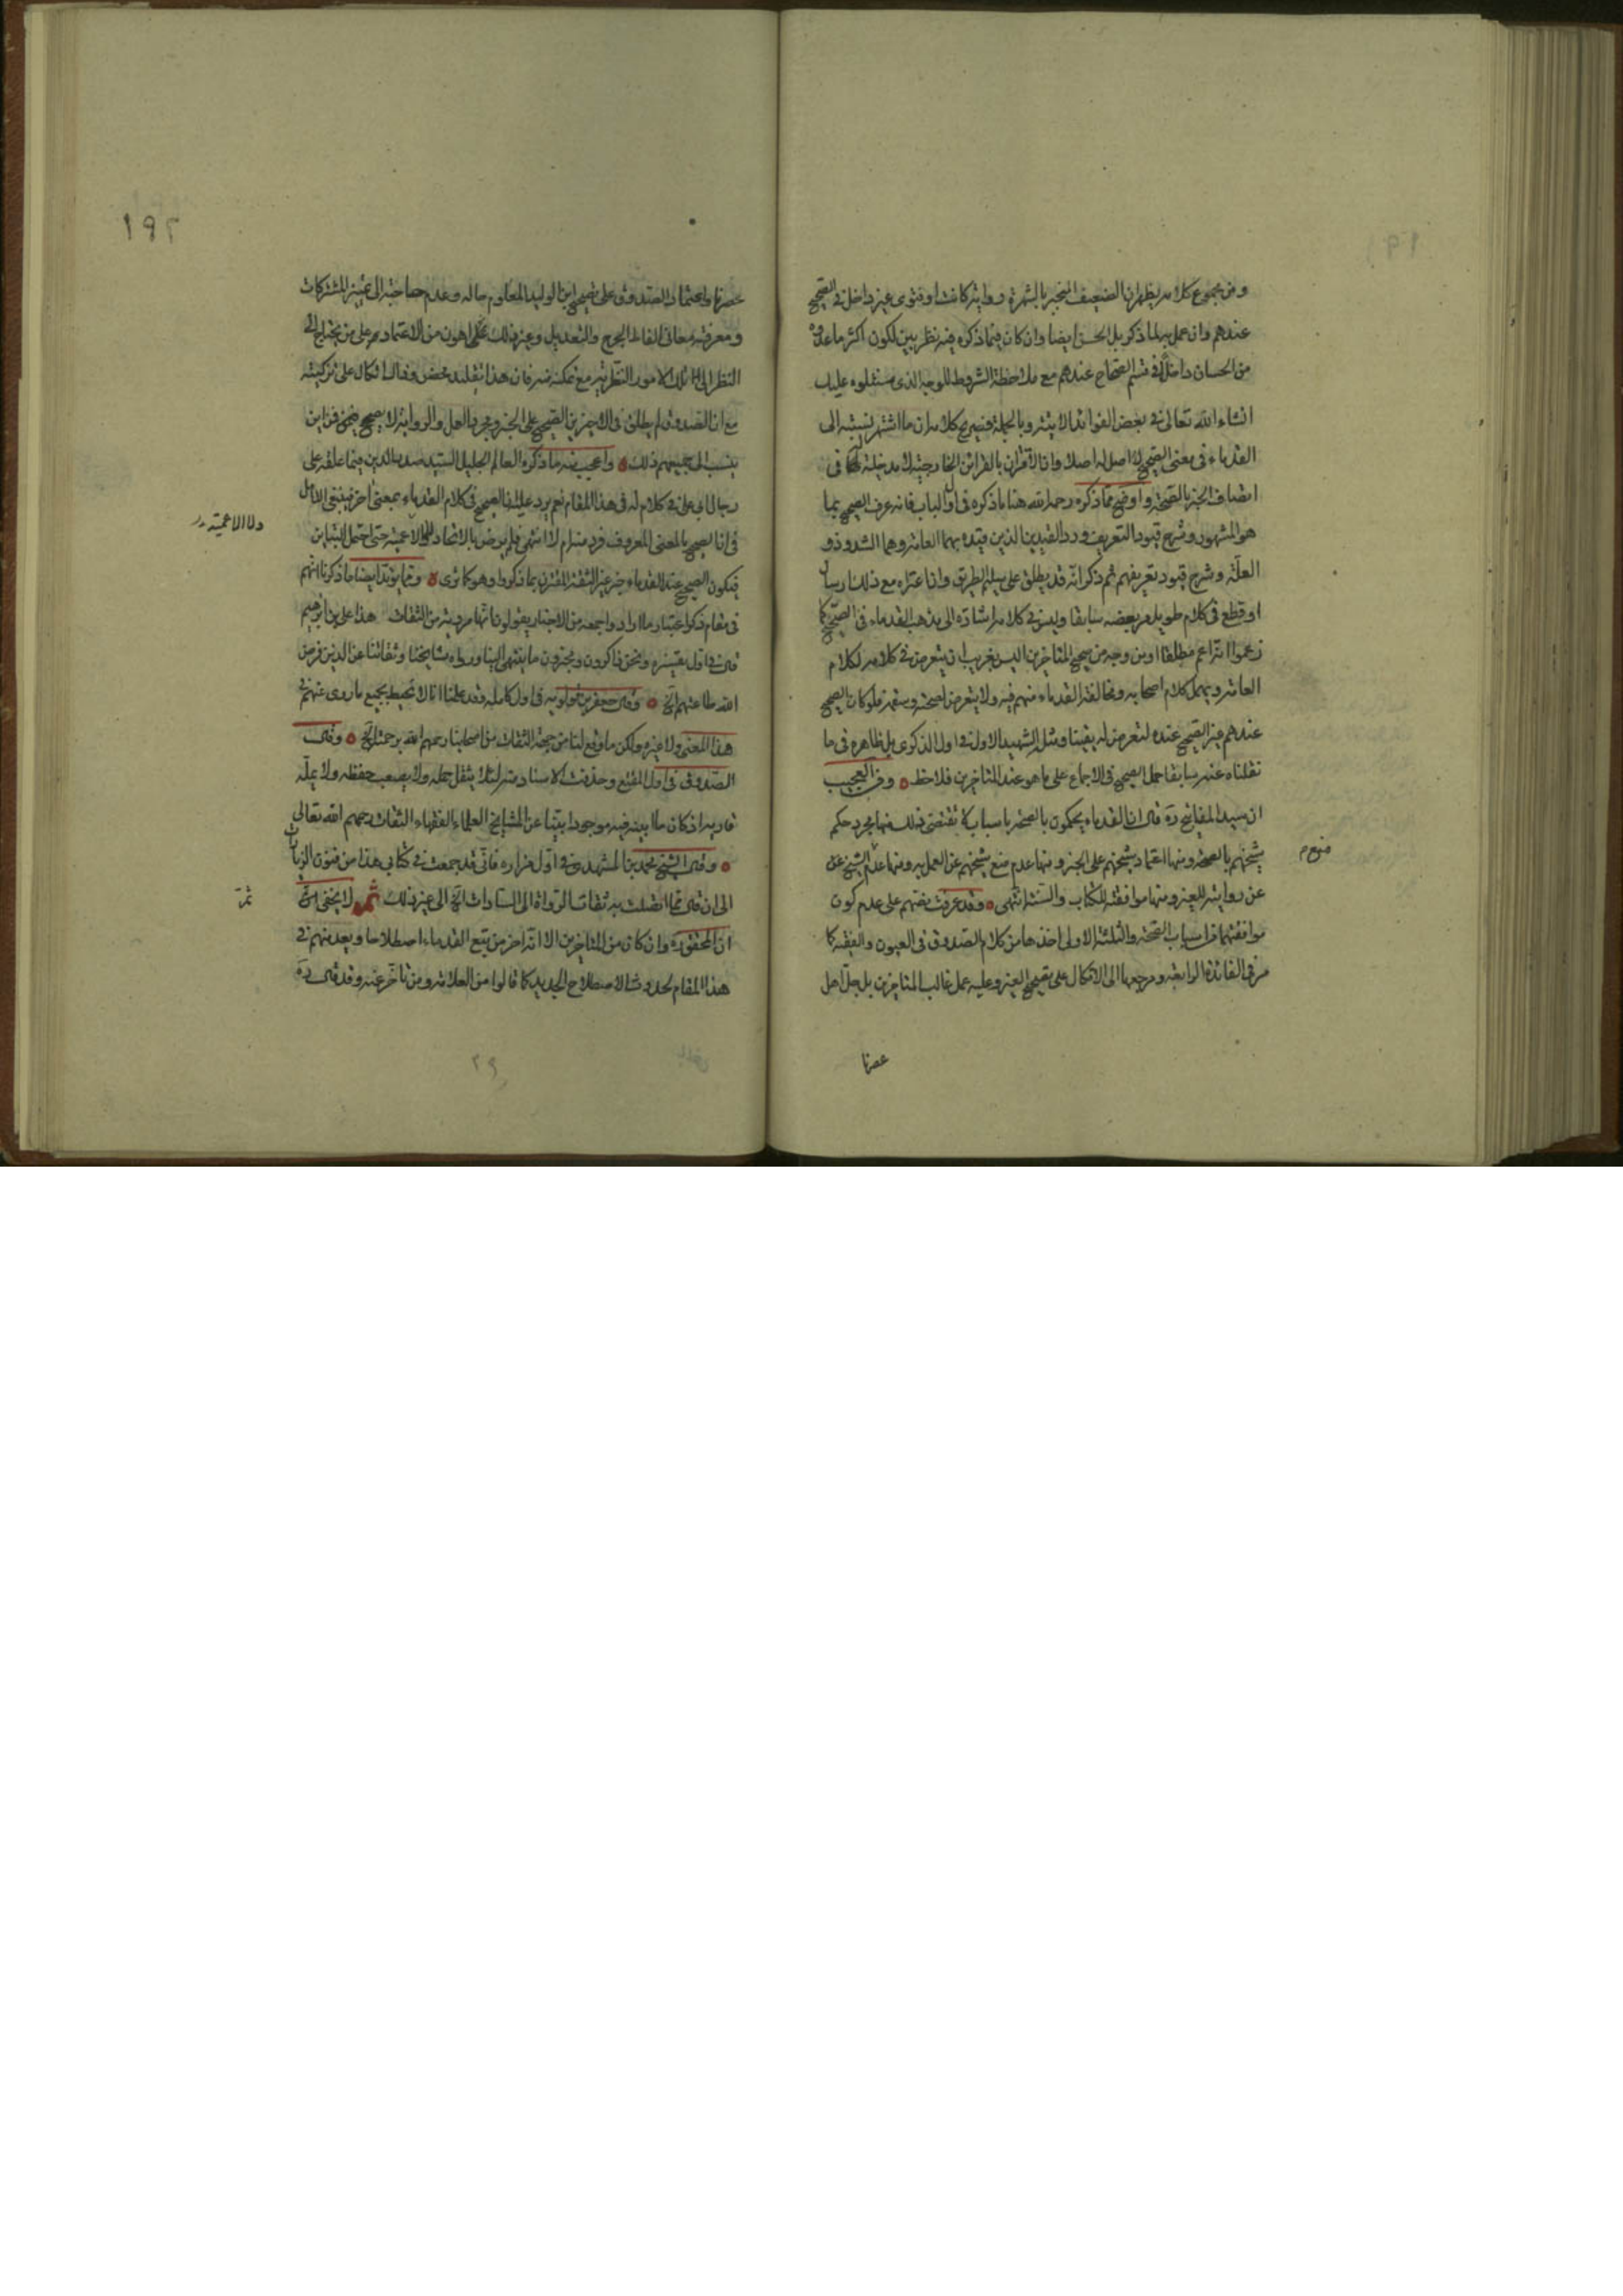 ومن مجموع كلامه يظهر ان الضعيف المنجبر بالشهرة رواية كانت او فتوى غير داخل في الصحيح
عندهم وان عمل به لما ذكر بل الحسن ايضا وان كان فيما ذكره فيه نظر بين لكون اكثر ما عدوه
من الحسان داخلا في قسم الصحاح عندهم مع ملاحظة الشروط للوجه الذي سنتلوه عليك
انشاء الله تعالى في بعض الفوائد الاتية وبالجملة فصريح كلامه ان ما اشتهر نسبته الى
القدماء في معنى الصحيح لا اصل له اصلا وان الاقتران بالقرائن الخارجية لا مدخلية لها في
اتصاف الخبر بالصحة واوضح مما ذكره رحمه الله هنا ما ذكره في اول الباب فانه عرف الصحيح بما
هو المشهور وشرح قيود التعريف ورد القيدين الذين قيده بهما العامة وهما الشذوذ و
العلة وشرح قيود تعريفهم ثم ذكر انه قد يطلق على سليم الطريق وان اعتراه مع ذلك ارسال
او قطع في كلام طويل مر بعضه سابقا وليس في كلامه اشارة الى مذهب القدماء في الصحيح كما
زعموا انه اعم مطلقا او من وجه من صحيح المتاخرين اليس بغريب ان يتعرض في كلامه لكلام
العامة ويهمل كلام اصحابه ومخالفة القدماء منهم فيه ولا يتعرض لصحته وسقمه فلو كان الصحيح
عندهم غير الصحيح عنده لتعرض له يقينا ومثله الشهيد الاول في اول الذكرى بل ظاهره في ما
نقلناه عنه سابقا حمل الصحيح في الاجماع على ما هو عند المتاخرين فلاحظ ومن العجيب
ان سيد المفاتيح ره قال ان القدماء يحكمون بالصحة باسباب لا تقتضي ذلك منها مجرد حكم
شيخهم بالصحة ومنها اعتماد شيخهم على الخبر ومنها عدم منع شيخهم عن العمل به ومنها عدم الشيخ عن
منع م
عن روايته للغير ومنها موافقته للكتاب والسنة انتهى وقد عرفت نصهم على عدم كون
موافقتهما من اسباب الصحة والثلثة الاولى اخذها من كلام الصدوق في العيون والفقيه كما
مر في الفائدة الرابعة ومرجعها الى الاتكال على تصحيح الغير وعليه عمل غالب المتاخرين بل جل اهل
عصرنا
١٩٢
عصرنا واعتماد الصدوق على تصحيح ابن الوليد المعلوم حاله وعدم حاجته الى تمييز المشتركات
ومعرفة معاني الفاظ الجرح والتعديل وغير ذلك اهون من الاعتماد على من يحتاج الى
النظر الى تلك الامور النظرية مع تمكنه منه فان هذا تقليد محض وذاك اتكال على تزكيته
مع ان الصدوق لم يطلق في الاخيرين الصحيح على الخبر ومجرد العمل والرواية لا يصحح فمن اين
ينسب الى جميعهم ذلك واعجب منه ما ذكره العالم الجليل السيد صدر الدين فيما علقه على
رجال ابي علي في كلام له في هذا المقام نعم يرد علينا الصحيح في كلام القدماء بمعنى اخر فينبغي الامل
في ان الصحيح بالمعنى المعروف فرد منه ام لا انتهى فلم يرض بالاتحاد ولا الاعمية حتى احتمل التباين
ولا الاعمية
فيكون الصحيح عند القدماء خبر غير الثقة المقترن بما ذكروا وهو كما ترى ومما يؤيد ايضا ما ذكرنا انهم
في مقام ذكر اعتبار ما اوردوا جمعه من الاخبار يقولون انها مروية من الثقات هذا علي بن ابراهيم
قال في اول تفسيره ونحن ذاكرون ومخبرون ما ينتهي الينا ورواه مشايخنا وثقاتنا عن الذين فرض
الله طاعتهم الخ وقال جعفر بن قولويه في اول كامله وقد علمنا انا لا نحيط بجميع ما روى عنهم في
هذا المعنى ولا غيره ولكن ما وقع لنا من جهة الثقات من اصحابنا رحمهم الله برحمته الخ وقال
الصدوق في اول المقنع وحذفت الاسناد منه لئلا يثقل حمله ولا يصعب حفظه ولا يمله
قاريه اذ كان ما ابينه فيه موجودا بينا عن المشايخ العلماء الفقهاء الثقات رحمهم الله تعالى
وقال الشيخ محمد بن المشهدي في اول مزاره فاني قد جمعت في كتابي هذا من فنون الزيارات
الى ان قال مما اتصلت به ثقات الرواة الى السادات الخ الى غير ذلك ثم لا يخفى
ان المحقق ره وان كان من المتاخرين الا انه اخر من يتبع القدماء اصطلاحا ويعد منهم في
هذا المقام لحدوث الاصطلاح الجديد كما قالوا من العلامة ومن تاخر عنه وقد قال ره